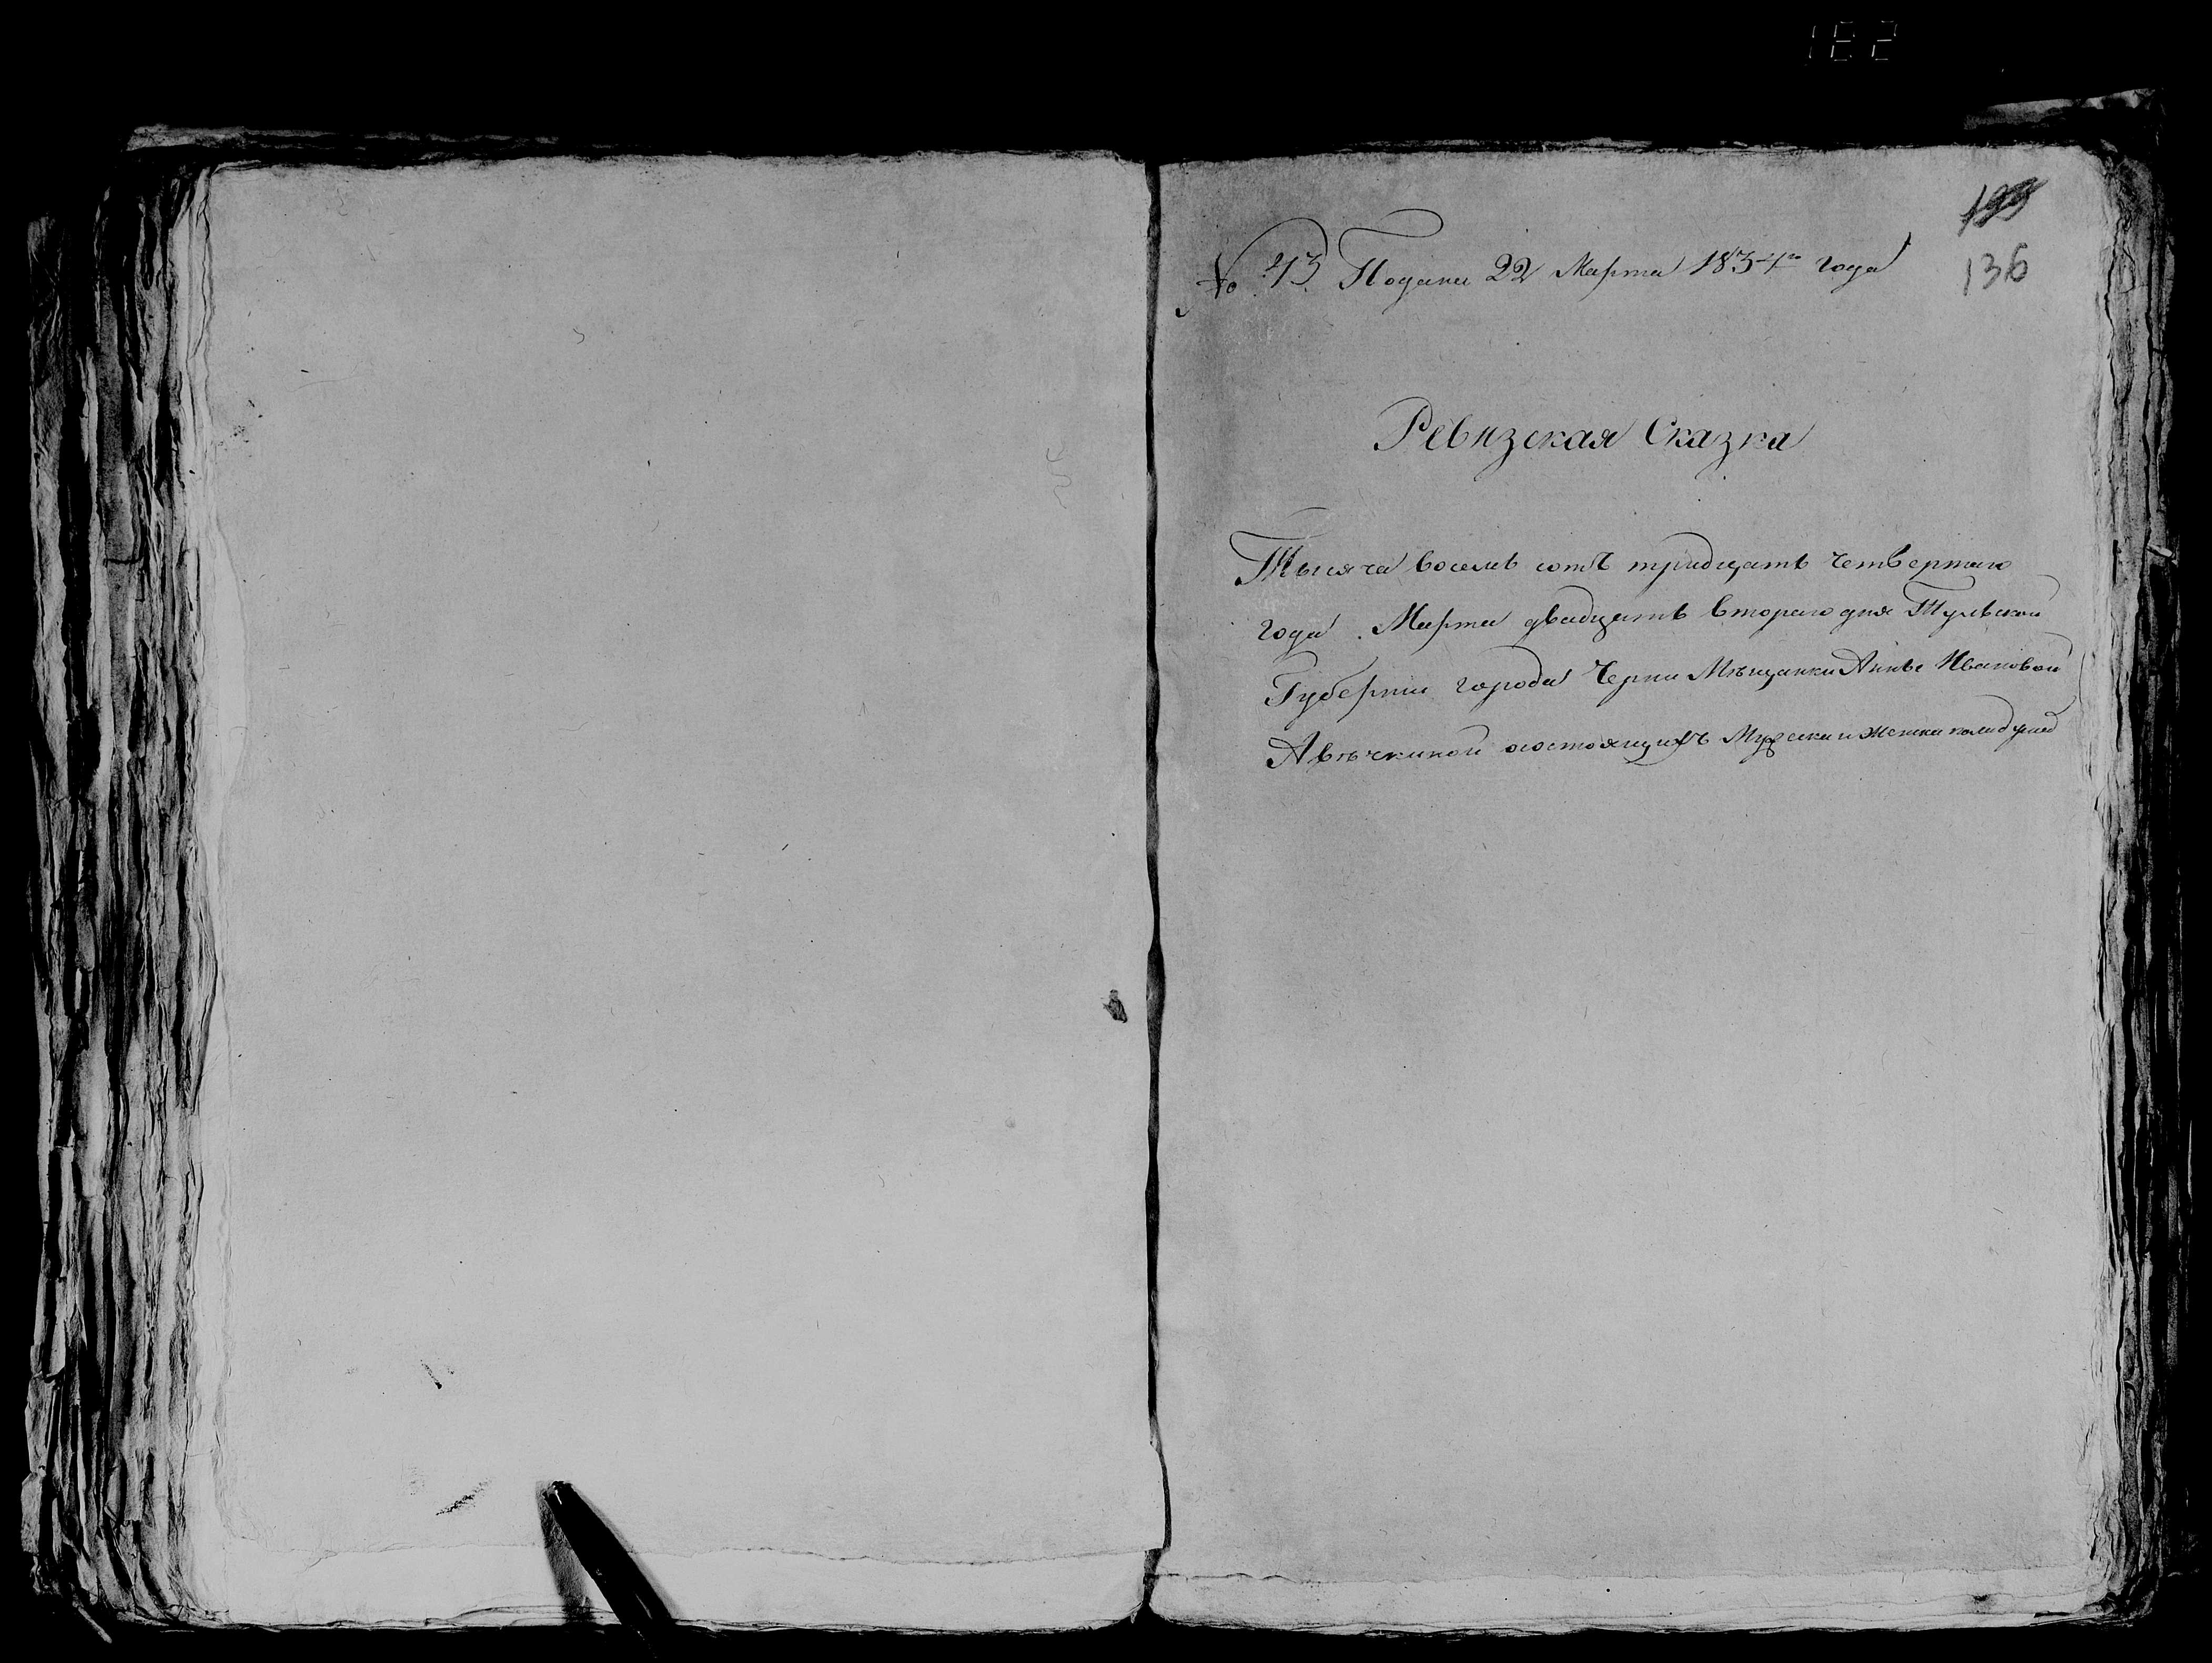 182
136
№ 43. Подана 22 Марта 1834го года
Ревизская Сказка
Тысяча восемь сотъ тридцать четвертаго
года. Марта двадцать втораго дня Тульской
Губернии города Черни Мѣщанки Анны Ивановой
Авѣчкиной о состоящихъ Мужеска и Женска пола душъ